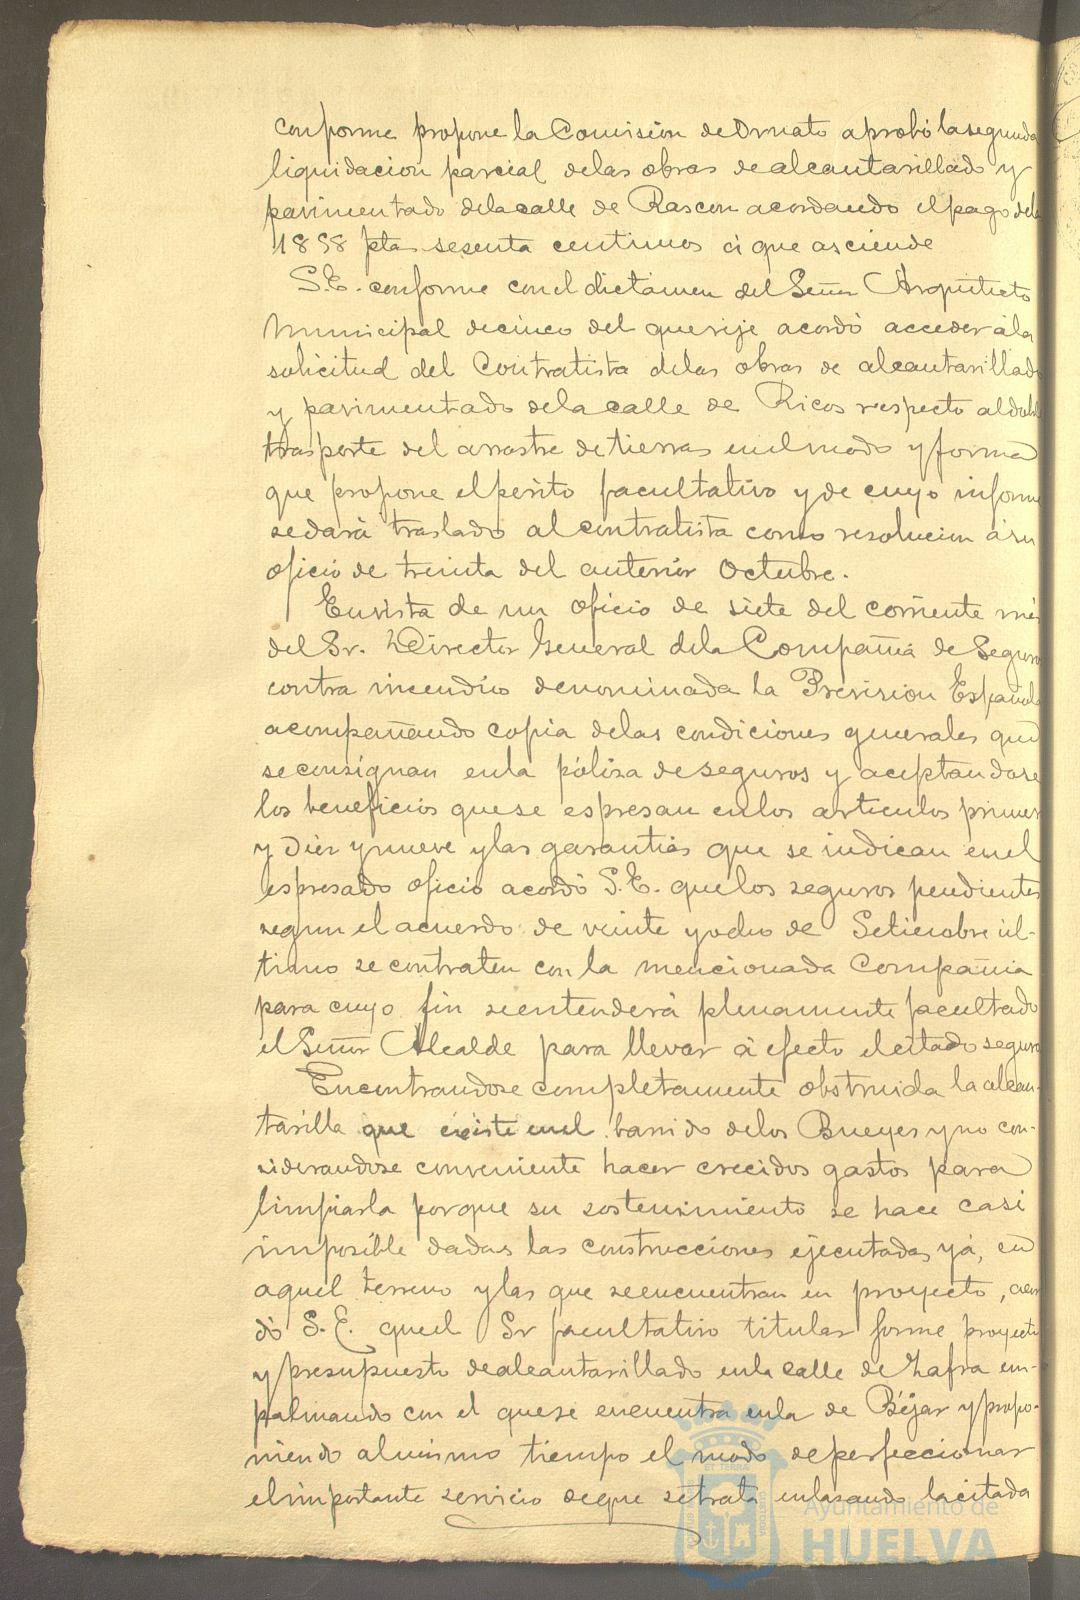 conforme propone la Comisión de Ornato aprobó la segunda
liquidacion parcial de las obras de alcantarillado y
pavimentado de la calle de Rascon acordando el pago de las
1858 ptas sesenta centimos á que asciende
S.E. conforme con el dictamen del Señor Arquitecto
Municipal de cinco del que rije acordó acceder á la
solicitud del Contratista de las obras de alcantarillado
y pavimentado de la calle de Ricos respecto al doble
trasporte del arrastre de tierras en el modo y forma
que propone el perito facultativo y de cuyo informe
se dará traslado al contratista como resolucion á su
oficio de treinta del anterior Octubre.
En vista de un oficio de siete del corriente mes
del Sr. Director General de la Compañia de Seguros
contra incendios denominada la Prevision Española
acompañando copia de las condiciones generales que
se consignan en la póliza de seguros y aceptandose
los beneficios que se espresan en los articulos primero
y diez y nueve y las garantias que se indican en el
espresado oficio acordó S.E. que los seguros pendientes
segun el acuerdo de veinte y ocho de Setiembre úl-
timo se contraten con la mencionada Compañia
para cuyo fin se entenderá plenamente facultado
el Señor Alcalde para llevar á efecto el citado seguro
Encontrandose completamente obstruida la alcan-
tarilla que existe en el barrido de los Bueyes y no con-
siderandose conveniente hacer crecidos gastos para
limpiarla porque su sostenimiento se hace casi
imposible dadas las construcciones ejecutadas yá, en
aquel terreno y las que se encuentran en proyecto, acor
dó S.E. que el Sr facultativo titular forme proyecto
y presupuesto de alcantarillado en la calle de Zafra em-
palmando con el que se encuentra en la de Béjar y propo-
niendo al mismo tiempo el modo de perfeccionar
el importante servicio de que se trata enlazando la citada
Ayuntamiento de
HUELVA